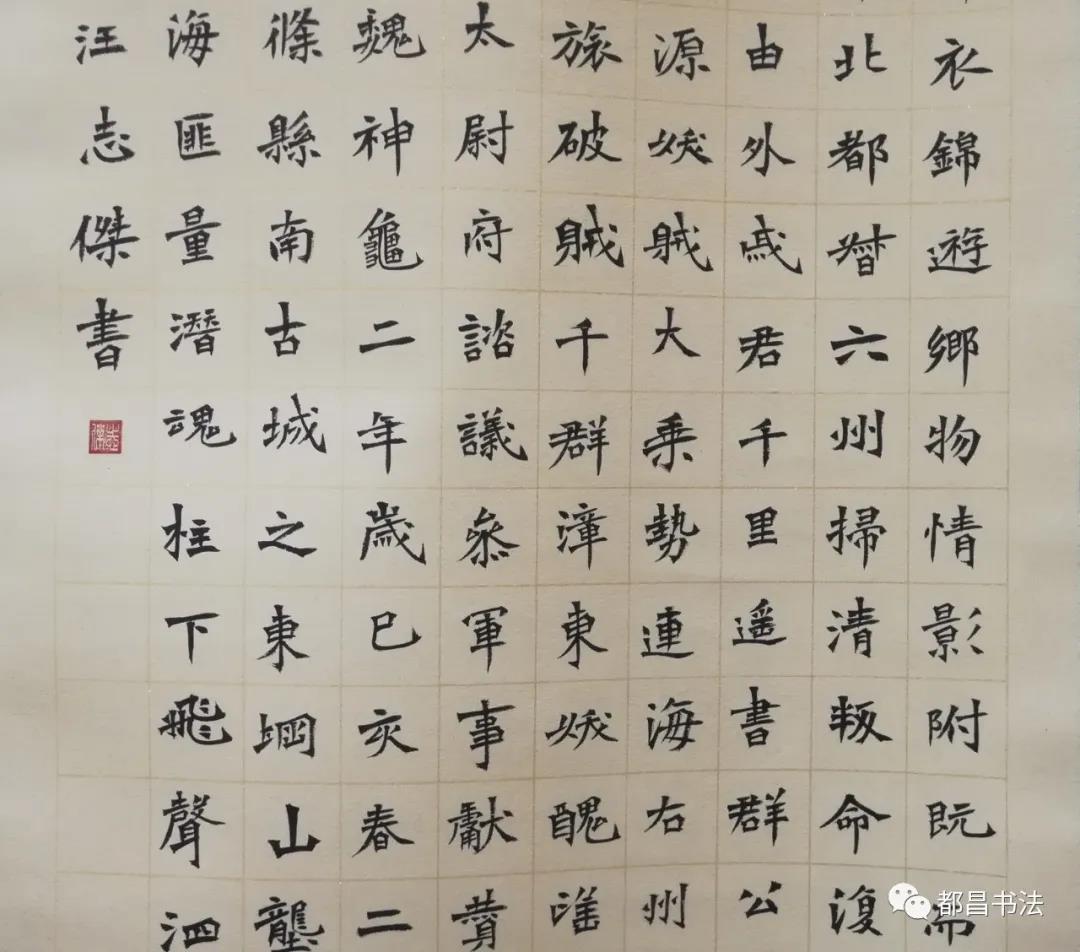 衣錦遊鄉物情影附既而
北都朁六州掃清叛命復
由外戚君千里遥書群公
源妖賊大乗勢連海右州
旅破賊千群漳東妖醜
太尉府諮議叅軍事獻賛
魏神龜二年歲巳亥春二
條縣南古城之東堈山壟
海匪量潛魂柱下飛聲泗
汪志傑書
都昌书法